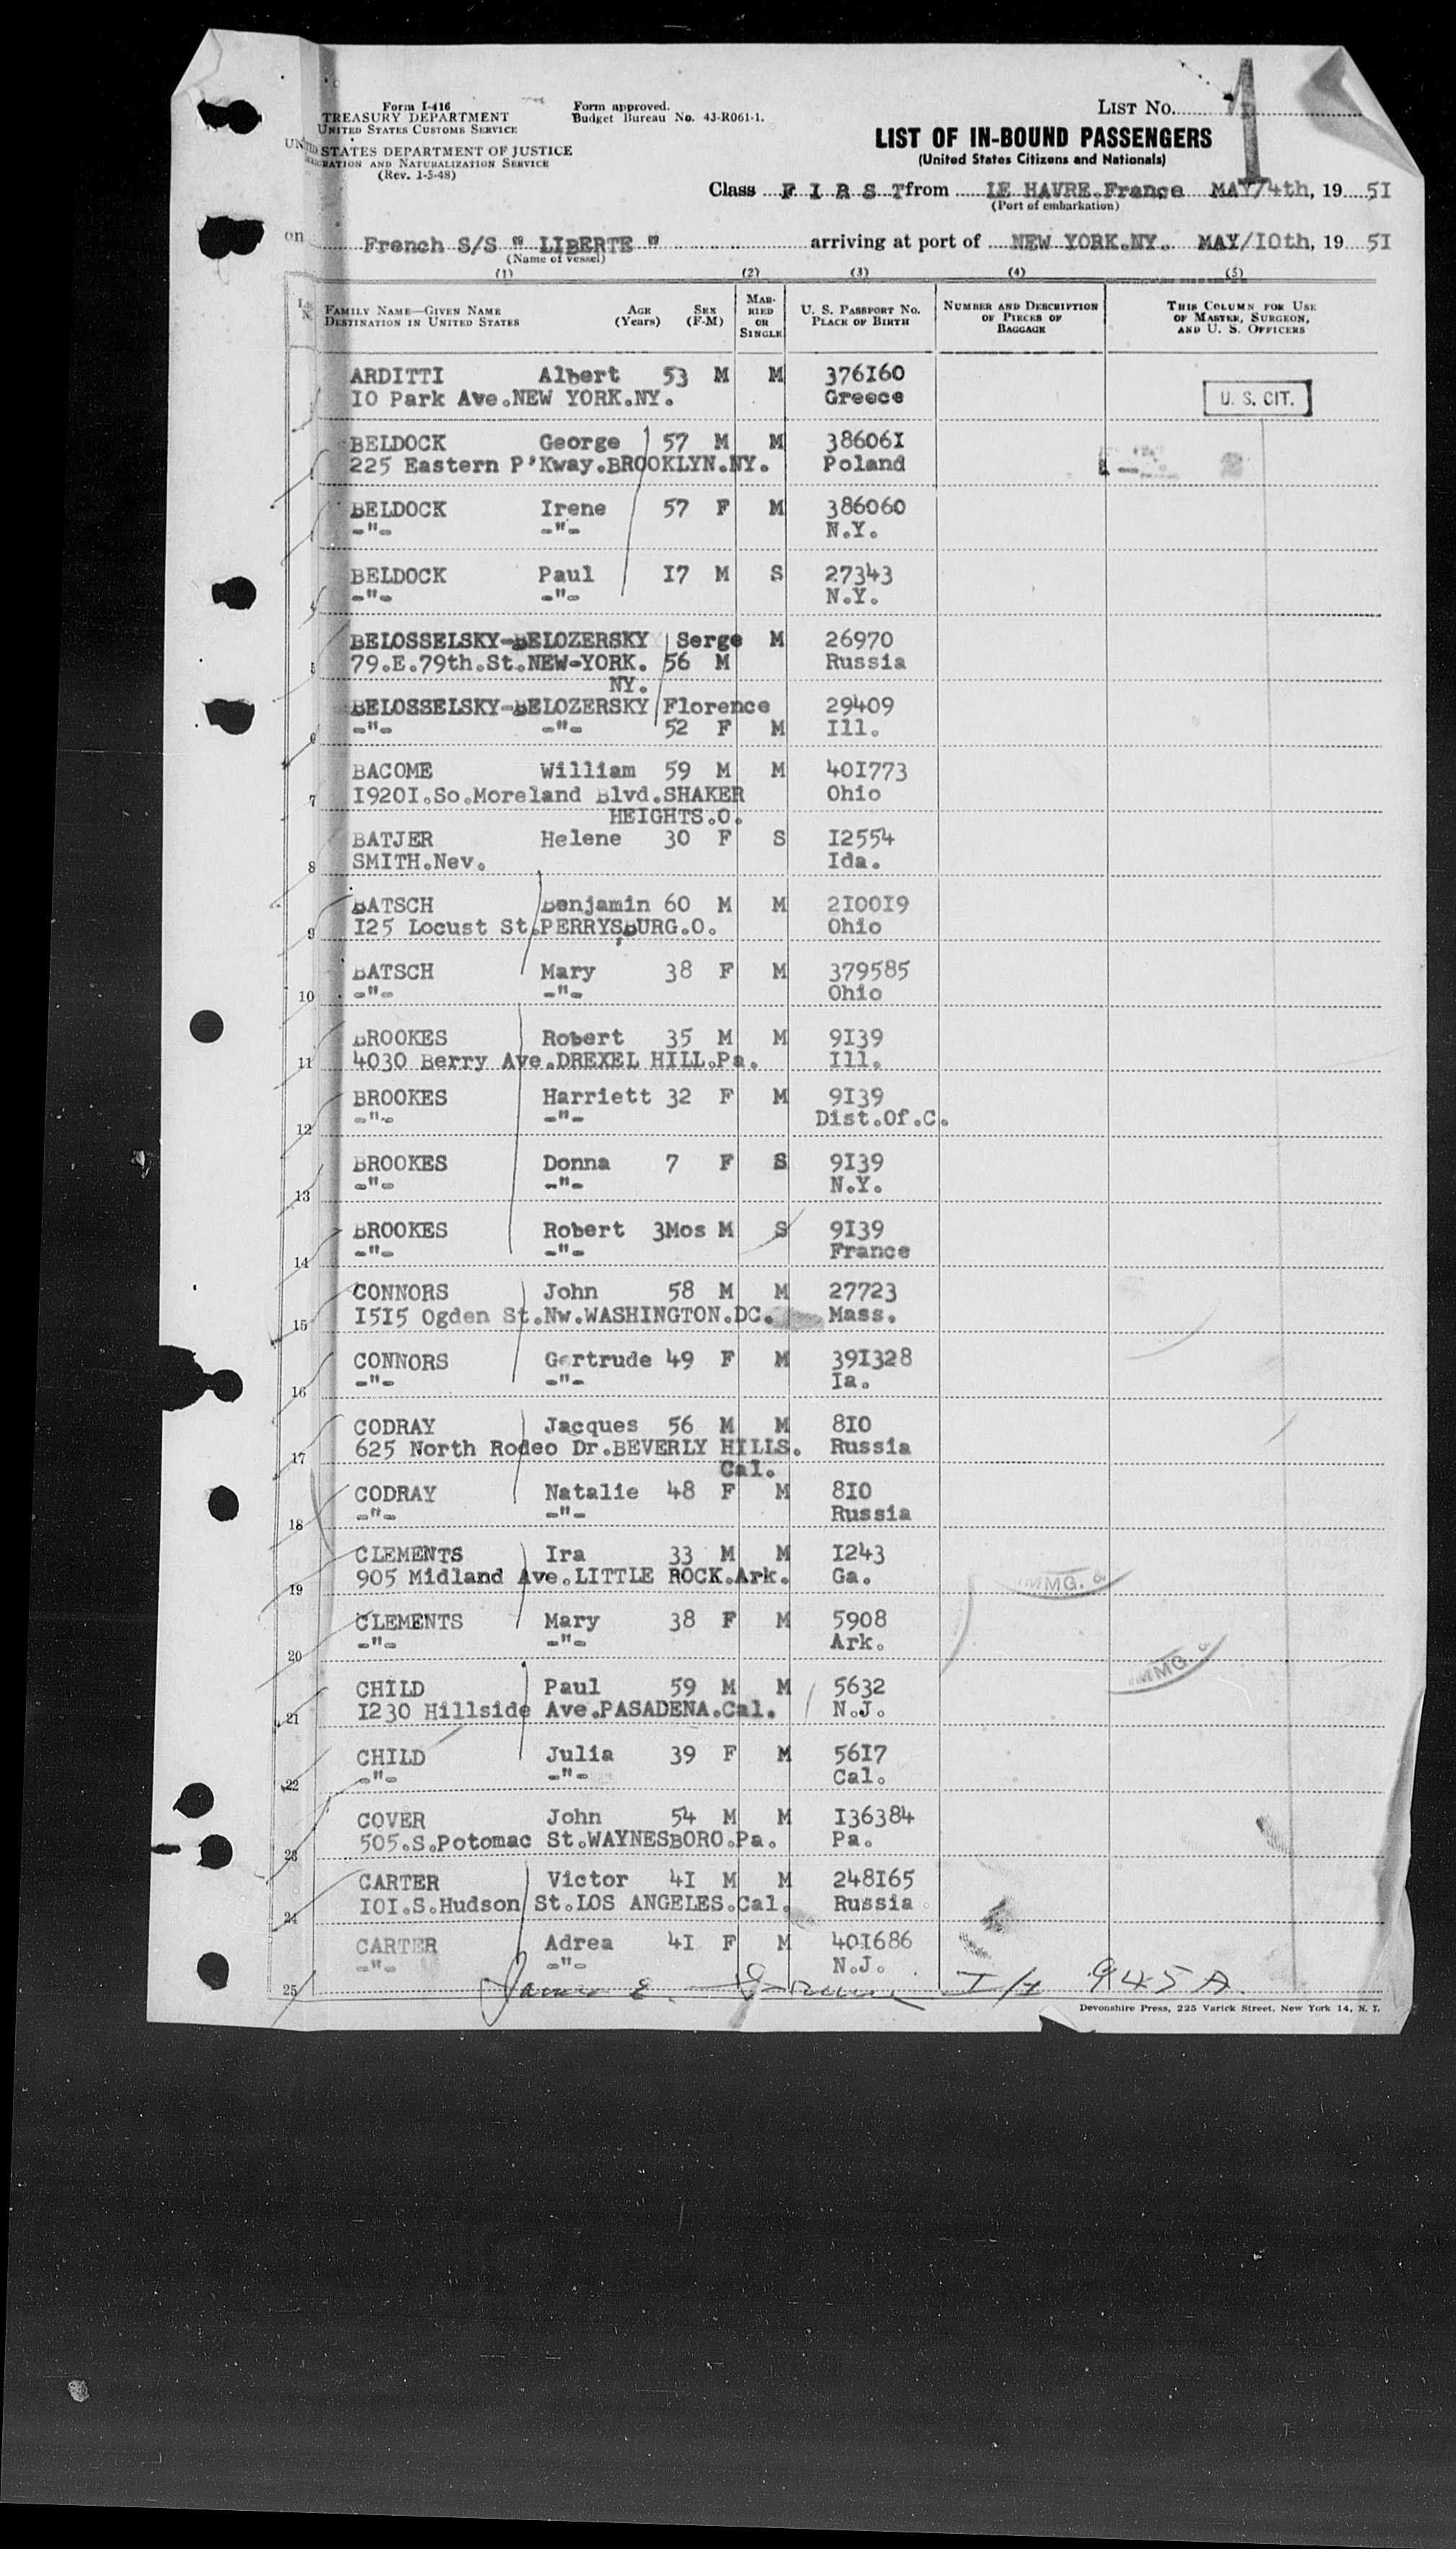 Form I-416
TREASURY DEPARTMENT
UNITED STATES CUSTOMS SERVICE
UNITED STATES DEPARTMENT OF JUSTICE
IMMIGRATION AND NATURALIZATION SERVICE
(Rev. 1-5-48)
Form approved.
Budget Bureau No. 43-R061-1.
LIST No. 1
LIST OF IN-BOUND PASSENGERS
(United States Citizens and Nationals)
Class F I R S T from LE HAVRE.France MAY/4th, 19 51
(Port of embarkation)
on French S/S " LIBERTE " arriving at port of NEW YORK.NY. MAY/10th, 19 51
(Name of vessel)
(1) (2) (3) (4) (5)
FAMILY NAME—GIVEN NAME
DESTINATION IN UNITED STATES
AGE
(Years)
SEX
(F-M)
MAR-
RIED
OR
SINGLE
U. S. PASSPORT NO.
PLACE OF BIRTH
NUMBER AND DESCRIPTION
OF PIECES OF
BAGGAGE
THIS COLUMN FOR USE
OF MASTER, SURGEON,
AND U. S. OFFICERS
ARDITTI Albert 53 M M 376160
10 Park Ave.NEW YORK.NY. Greece U. S. CIT.
BELDOCK George 57 M M 386061
225 Eastern P'Kway.BROOKLYN.NY. Poland
BELDOCK Irene 57 F M 386060
-"- -"- N.Y.
BELDOCK Paul 17 M S 27343
4 -"- -"- N.Y.
BELOSSELSKY-BELOZERSKY Serge M 26970
5 79.E.79th.St.NEW-YORK. 56 M Russia
NY.
BELOSSELSKY-BELOZERSKY Florence 29409
6 -"- -"- 52 F M Ill.
BACOME William 59 M M 401773
7 19201.So.Moreland Blvd.SHAKER Ohio
HEIGHTS.O.
BATJER Helene 30 F S 12554
8 SMITH.Nev. Ida.
BATSCH Benjamin 60 M M 210019
9 125 Locust St.PERRYSBURG.O. Ohio
BATSCH Mary 38 F M 379585
10 -"- -"- Ohio
BROOKES Robert 35 M M 9139
11 4030 Berry Ave.DREXEL HILL.Pa. Ill.
BROOKES Harriett 32 F M 9139
12 -"- -"- Dist.Of.C.
BROOKES Donna 7 F S 9139
13 -"- -"- N.Y.
BROOKES Robert 3Mos M S 9139
14 -"- -"- France
CONNORS John 58 M M 27723
15 1515 Ogden St.Nw.WASHINGTON.DC. Mass.
CONNORS Gertrude 49 F M 391328
16 -"- -"- Ia.
CODRAY Jacques 56 M M 810
17 625 North Rodeo Dr.BEVERLY HILLS. Russia
Cal.
CODRAY Natalie 48 F M 810
18 -"- -"- Russia
CLEMENTS Ira 33 M M 1243
19 905 Midland Ave.LITTLE ROCK.Ark. Ga.
IMMG. &
CLEMENTS Mary 38 F M 5908
20 -"- -"- Ark.
IMMG. &
CHILD Paul 59 M M 5632
21 1230 Hillside Ave.PASADENA.Cal. N.J.
CHILD Julia 39 F M 5617
22 -"- -"- Cal.
COVER John 54 M M 136384
23 505.S.Potomac St.WAYNESBORO.Pa. Pa.
CARTER Victor 41 M M 248165
24 101.S.Hudson St.LOS ANGELES.Cal. Russia
CARTER Adrea 41 F M 401686
25 -"- -"- N.J.
James E. I/I 945A
Devonshire Press, 225 Varick Street, New York 14, N. Y.